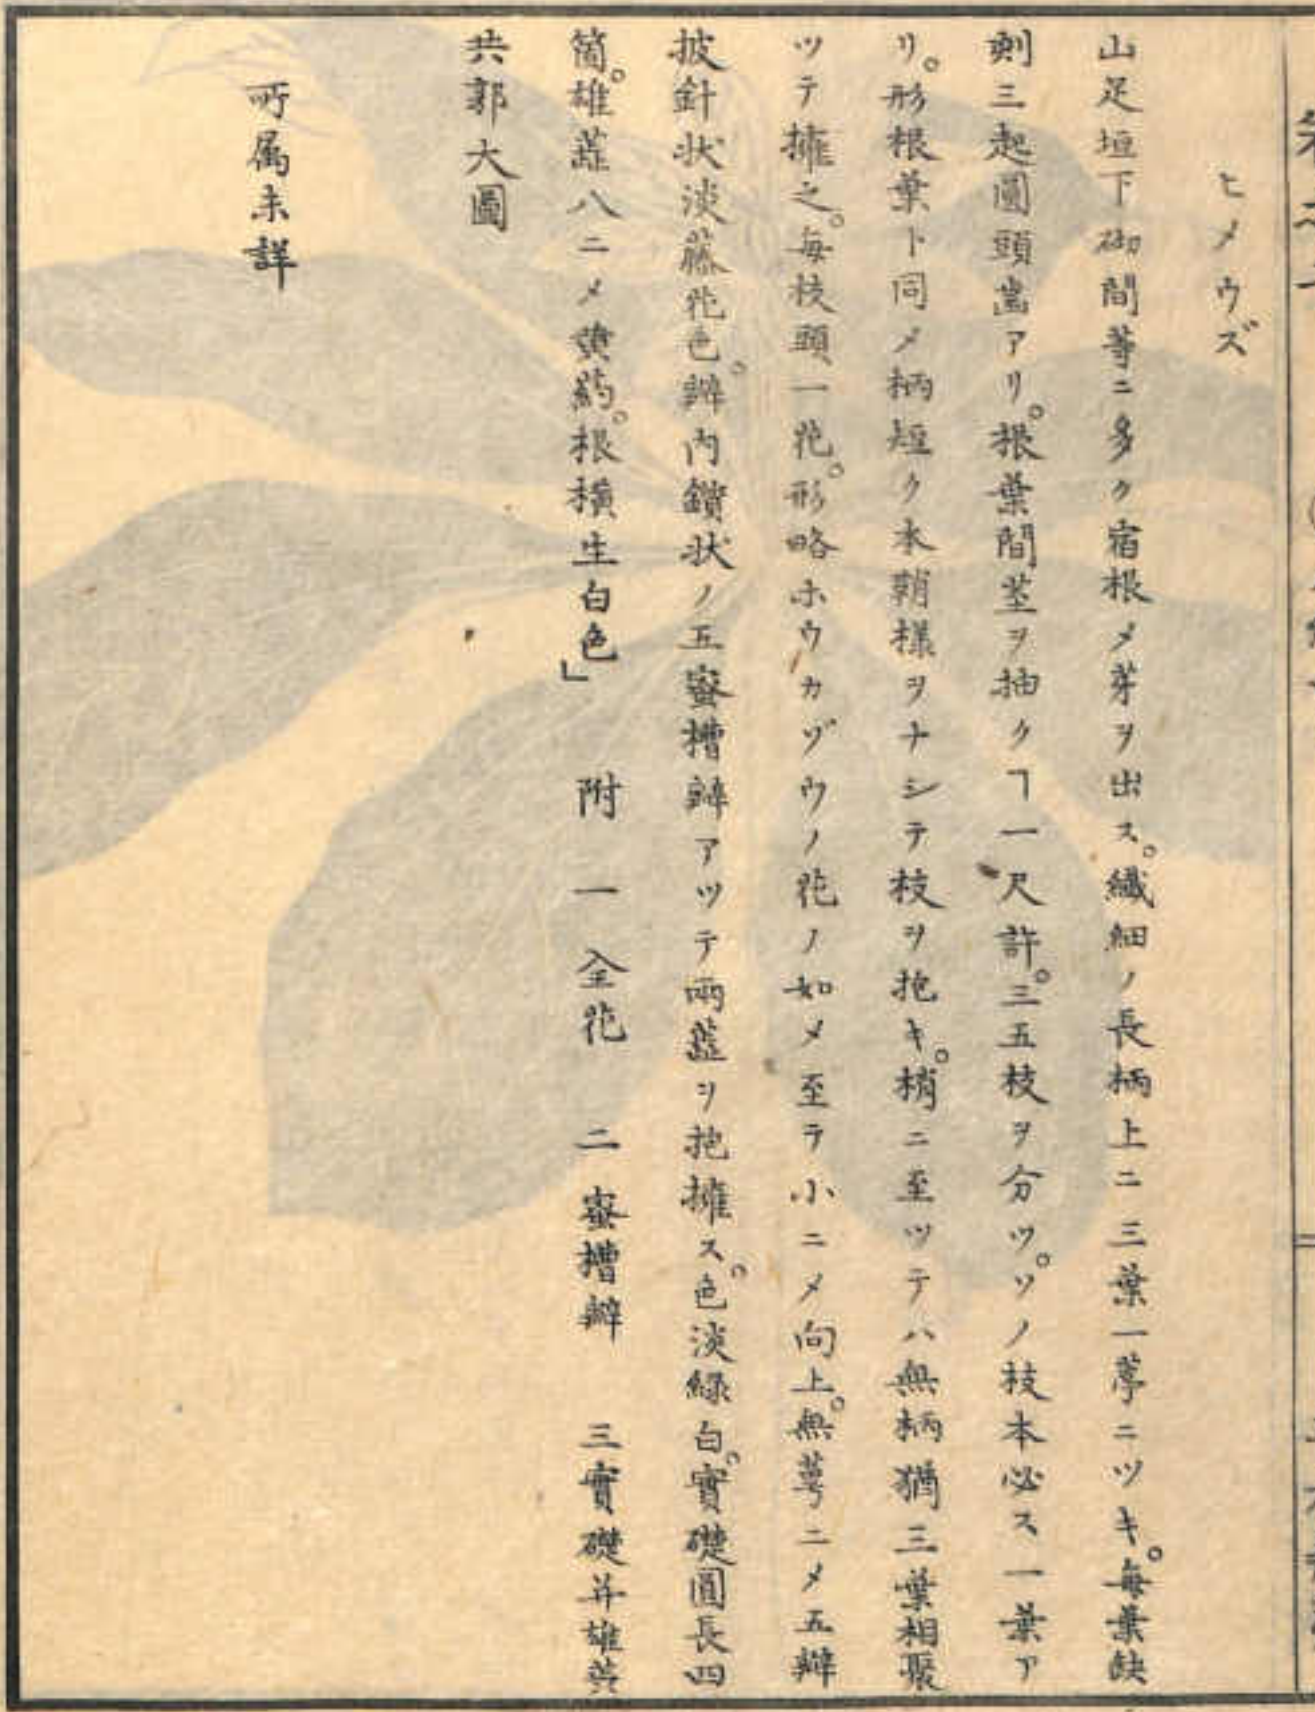 ヒメウズ
山足垣下砌間等ニ多ク宿根〆芽ヲ出ス。繊細ノ長柄上ニ三葉一蕚ニツキ。毎葉缺
刻三起圓頭歯アリ。根葉間莖ヲ抽クヿ一尺許。三五枝ヲ分ツ。ソノ枝本必ス一葉ア
リ。形根葉ト同〆柄短ク本鞘様ヲナシテ枝ヲ抱キ。梢ニ至ツテハ無柄猶三葉相聚
ツテ擁之。毎枝頭一花。形略ホウカヅウノ花ノ如〆至テ小ニ〆向上。無萼ニ〆五瓣
披針状淡藤花色。瓣内鑚状ノ五蜜槽瓣アツテ両蕋ヲ抱擁ス。色淡緑白。實礎圓長四
箇。雄蕋八ニ〆黄葯。根横生白色」 附 一 全花 二 蜜槽瓣 三 實礎并雄蕋
共郭大圖
所属未詳